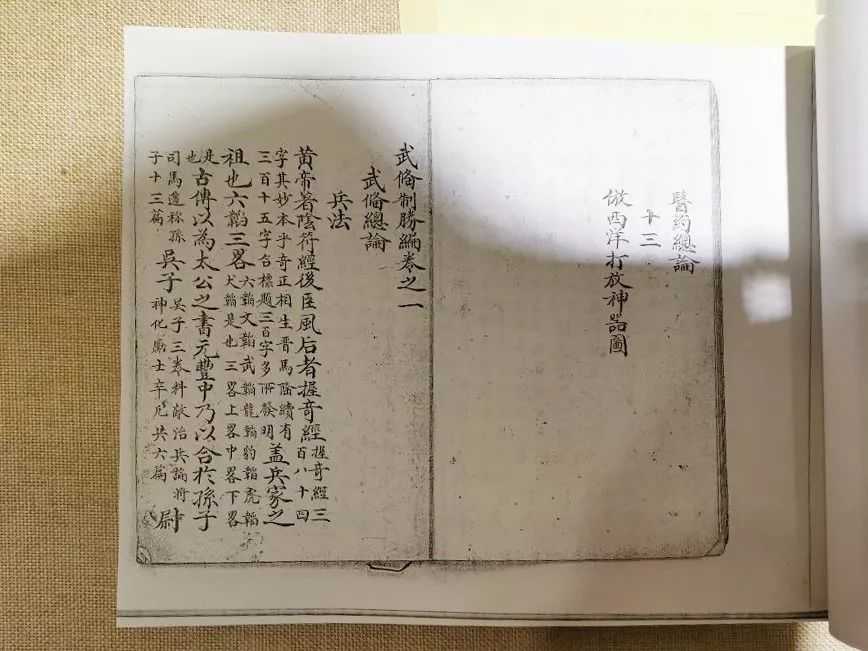 醫药總論
十三
倣西洋打放神器圖
武俻制勝編卷之一
武俻總論
兵法
黄帝著陰符經後臣風后者握奇經握奇經三百八十四
字其妙本乎奇正相生晋馬隆續有三百十五字合標題三百字多所發明蓋兵家之
祖也六韜三畧六韜文韜武韜龍韜豹韜虎韜犬韜是也三畧上畧中畧下畧
是也古傳以為太公之書元豐中乃以合於孫子
司馬遷称孫子十三篇吳子吳子三卷料敵治兵論将神化厲士卒凡共六篇尉